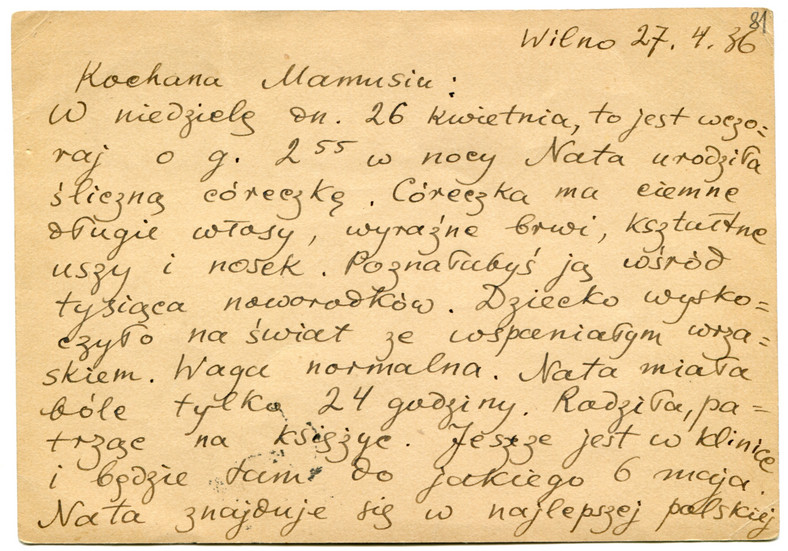 81
Wilno 27.4.36
Kochana Mamusiu:
W niedzielę dn. 26 kwietnia, to jest wczo=
raj o g. 2 55 w nocy Nata urodziła
śliczną córeczkę. Córeczka ma ciemne
długie włosy, wyraźne brwi, kształtne
uszy i nosek. Poznałubyś ją wśród
tysiąca noworodków. Dziecko wysko=
czyło na świat ze wspaniałym wrza=
skiem. Waga normalna. Nata miała
bóle tylko 24 godziny. Rodziła, pa=
trząc na księżyc. Jeszcze jest w klinice
i będzie tam do jakiego 6 maja.
Nata znajduje się w najlepszej polskiej